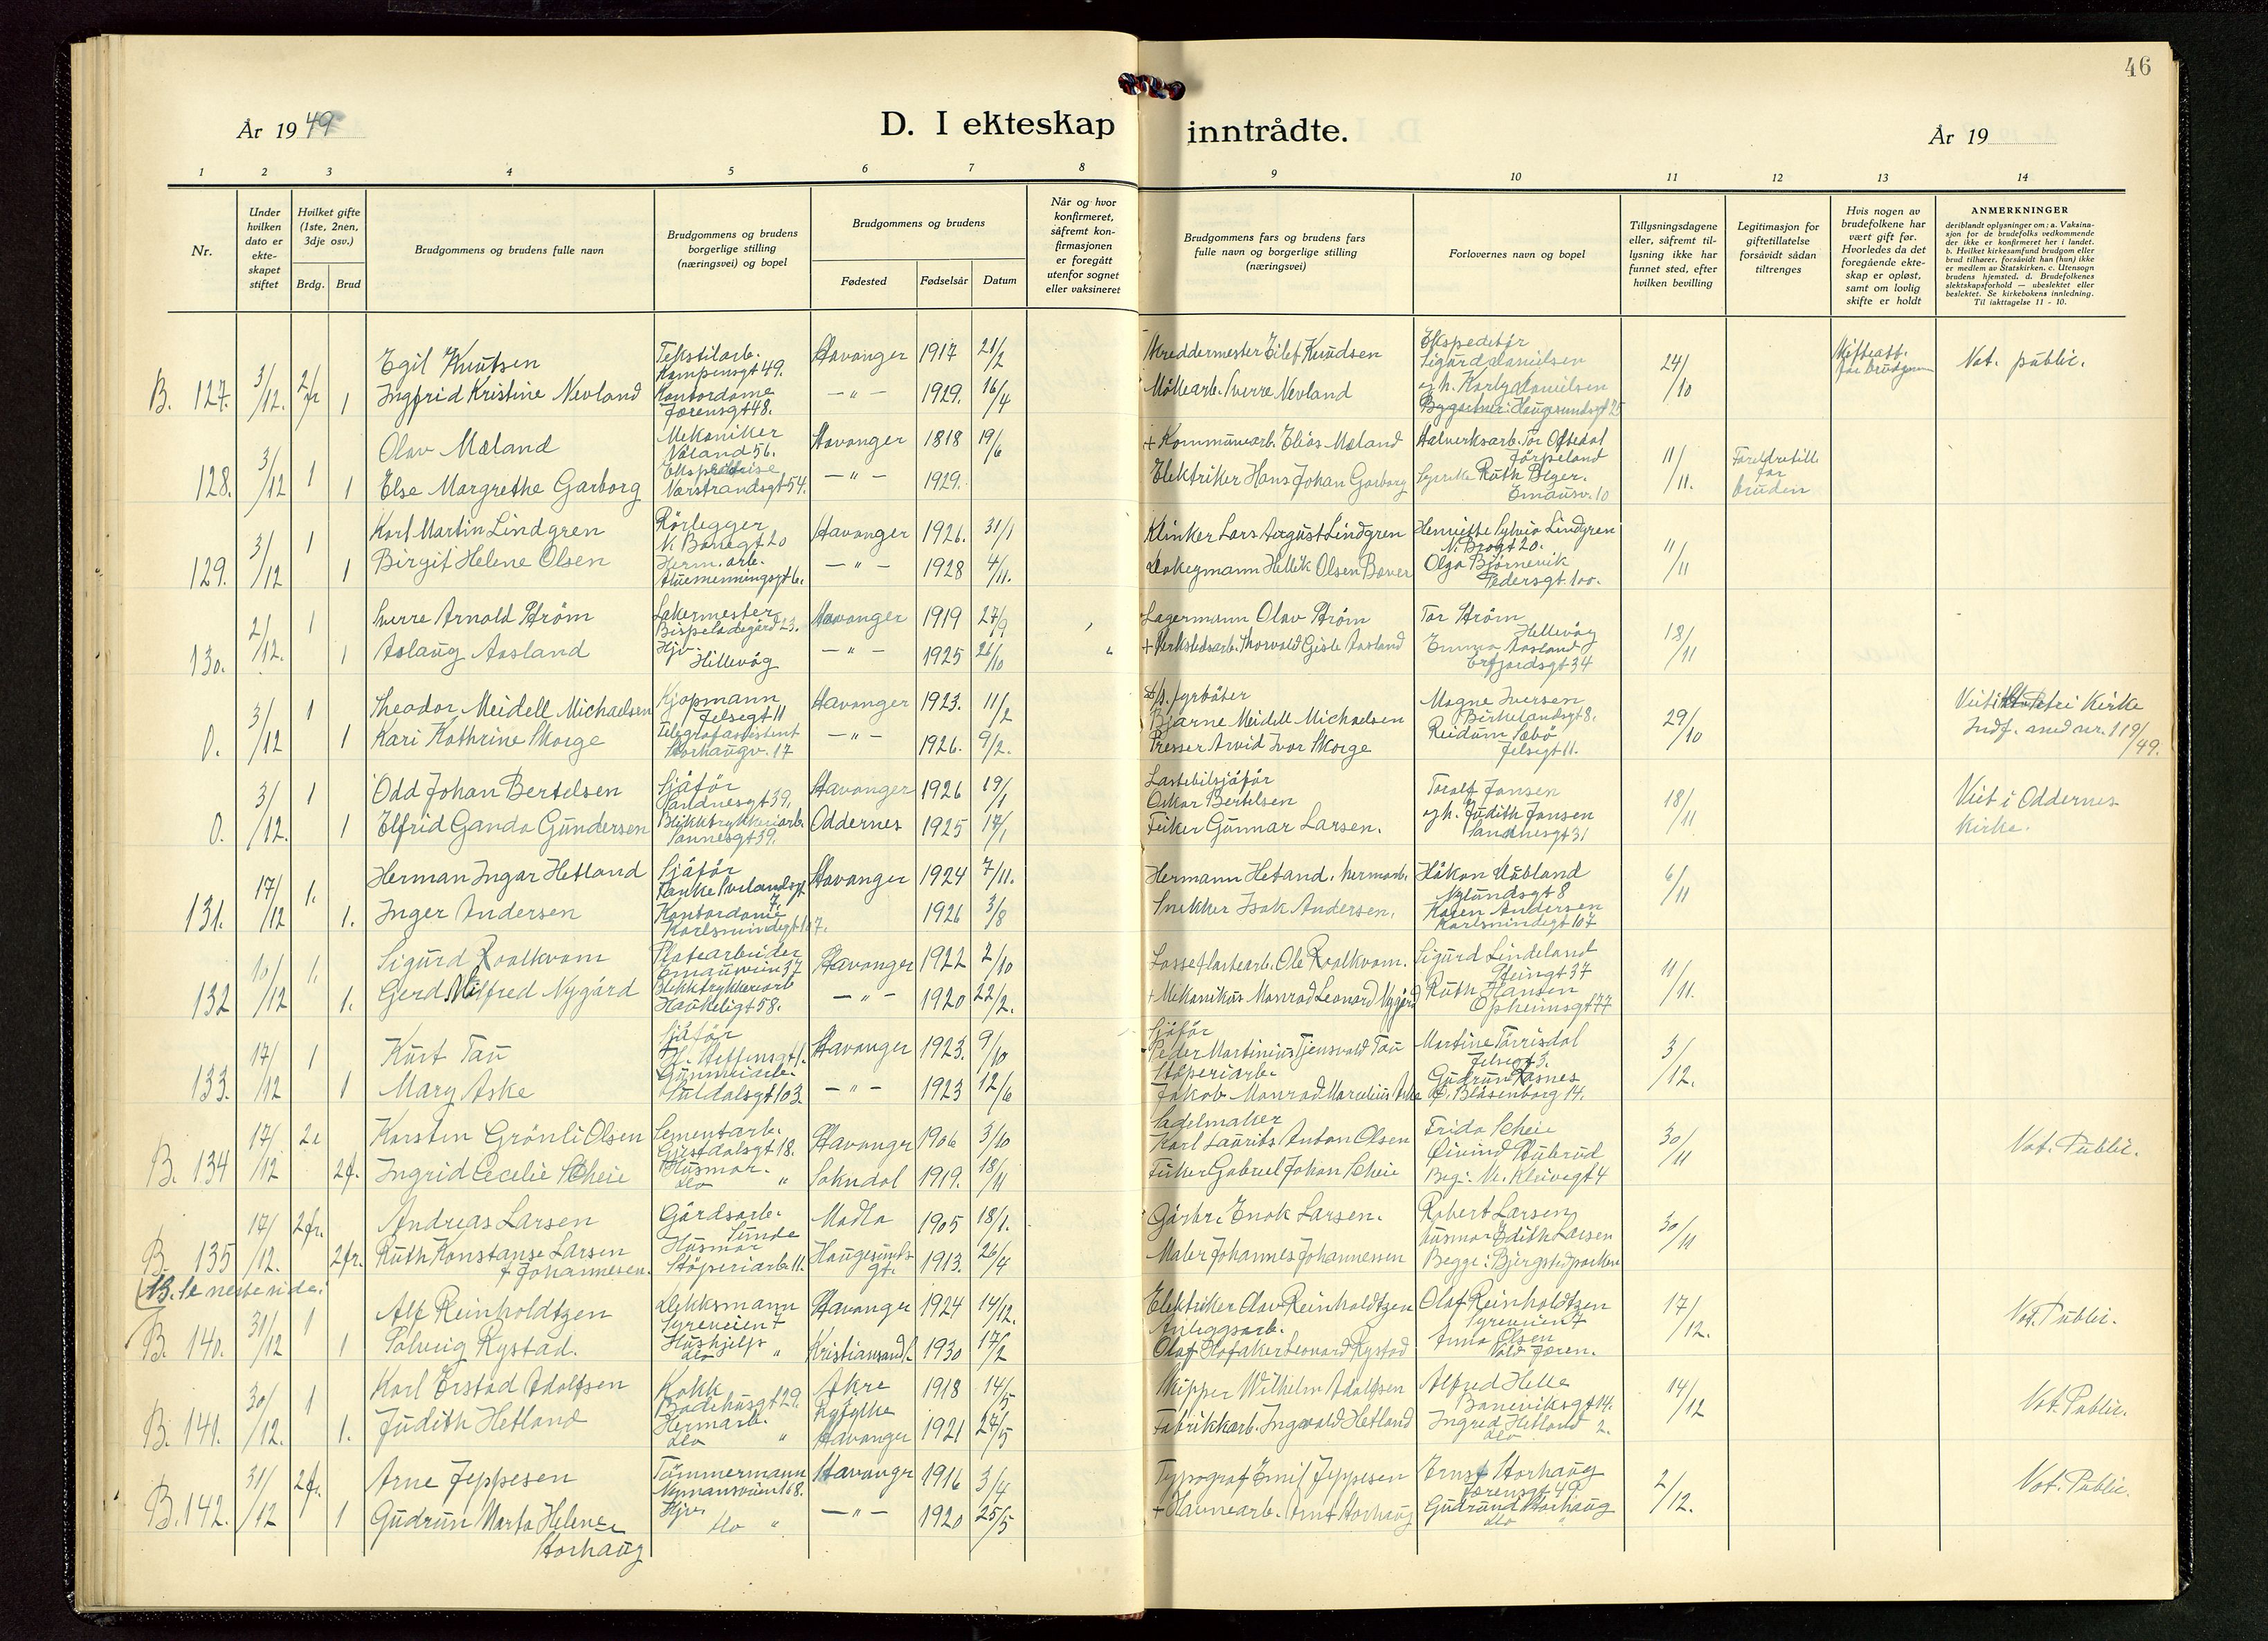 46
År 1949
D. I ekteskap inntrådte.
År 19
1 2 3 4 5 6 7 8 9 10 11 12 13 14
Nr.
Under hvilken dato er ekte-skapet stiftet
Hvilket gifte (1ste, 2nen, 3dje osv.)
Brdg. Brud
Brudgommens og brudens fulle navn
Brudgommens og brudens borgerlige stilling (næringsvei) og bopel
Brudgommens og brudens
Fødested Fødselsår Datum
Når og hvor konfirmeret, såfremt kon-firmasjonen er foregått utenfor sognet eller vaksineret
Brudgommens fars og brudens fars fulle navn og borgerlige stilling (næringsvei)
Forlovernes navn og bopel
Tillysningsdagene eller, såfremt til-lysning ikke har funnet sted, efter hvilken bevilling
Legitimasjon for giftetillatelse forsåvidt sådan tiltrenges
Hvis nogen av brudefolkene har vært gift før. Hvorledes da det foregående ekte-skap er opløst, samt om lovlig skifte er holdt
ANMERKNINGER
deriblandt oplysninger om; a. Vaksina-sjon for de brudefolks vedkommende der ikke er konfirmeret her i landet. b. Hvilket kirkesamfund brudgom eller brud tilhører, forsåvidt han (hun) ikke er medlem av Statskirken. c. Utensogn brudens hjemsted. d. Brudefolkenes slektskapsforhold — ubeslektet eller beslektet. Se kirkebokens innledning. Til iakttagelse 11 - 10.
B. 127. 3/12. 2/fr 1
Egil Knutsen Tekstilarb. Kampensgt 49. Stavanger 1917 21/2 Skreddermester Eilef Knudsen Ekspeditør Sigurd Danielsen 24/10 Skifteatt. for brudgom Not. public.
Ingfrid Kristine Nevland Kontordame Jørensgt 48. — " — 1929. 16/4 Møllearb. Sverre Nevland
128. 3/12 1 1
Olav Mæland Mekaniker Våland 56. Stavanger 1818 19/6 + Kommunearb. Elias Mæland Halverksarb. Tor Oftedal Jørpeland 11/11. Foreldretill. for bruden
Else Margrethe Garborg Ekspeditrise Varstrandsgt 54. — " — 1929. Elektriker Hans Johan Garborg Ruth Beger. Emausv. 10
129. 3/12 1 1
Karl Martin Lindgren Rørlegger N. Banegt 20 Stavanger 1926. 31/1 Klinker Lars August Lindgren Henriette Sylvia Lindgren 11/11
Birgit Helene Olsen Herm. arb. — " — 1928 4/11. Olga Bjørnevik Pedersgt 100.
130. 2/12. 1 1
Sverre Arnold Strøm Lakermester Bispeladegård 23. Stavanger 1919 27/9 Lagermann Olav Strøm Tor Strøm Hillevåg 18/11
Aslaug Aasland Hjv. Hillevåg — " — 1925 26/10 + Verkstedarb. Thorvald Gisle Aasland Emma Aasland Erfjordsgt 34
0. 3/12 1 1
Theodor Meidell Michaelsen Kjøpmann Jelsegt 11 Stavanger 1923. 11/2 Fyrbøter Bjarne Meidell Michaelsen Magne Iversen Birkelandsgt 8. 29/10 Viet i St. Petri Kirke
Kari Kathrine Skorge Telegrafassistent Storhaugv. 17 — " — 1926. 9/2. Presser Arvid Ivar Skorge Reidun Sæbø Jelsegt 11. Indf. med nr. 119/49.
0. 3/12. 1 1
Odd Johan Bertelsen Sjåfør Sandnesgt 39. Stavanger 1926 19/1 Lastebilsjåfør Oskar Bertelsen Toralf Jansen 18/11 Viet i Oddernes kirke.
Elfrid Ganda Gundersen Blikktrykkeriarb. Oddernes 1925 17/1 Fisker Gunnar Larsen. og h. Judith Jansen Sandnesgt 31
131. 17/12 1. 1.
Herman Ingar Hetland Sjåfør Stavanger 1924 7/11. Hermann Hetland, hermarb. Håkon Nubland Nylundsgt 8 6/11
Inger Andersen Kontordame Karlsmindegt 107. 1926 3/8 Snekker Isak Andersen. Karen Andersen Karlsmindegt 107
132 10/12 1. 1.
Sigurd Roalkvam Platearbeider Emausveien 37 Stavanger 1922 2/10 Losse & lastearb. Ole Roalkvam. Sigurd Lindeland Steingt 37 11/11.
Gerd Milfred Nygård Blekktrykkeriarb Haukeligt 58. — " — 1920 22/2. + Mekanikus Monrad Leonard Nygård Ruth Hansen Opheimsgt 77
133. 17/12 1 1
Kurt Tau Sjåfør Stavanger 1923. 9/10 Sjåfør Peder Martinius Tjensvold Tau Martine Tørrisdal Jelsegt 3. 3/12.
Mary Aske Gummiarb. Suldalsgt 103. — " — 1923 12/6 Støperiarb. Jakob Monrad Marselius Aske Gudrun Røsnes Ø. Blåsenborg 14.
B. 134 17/12 2. 2f.
Karsten Grønli Olsen Sementarb. Gjesdalsgt 18. Stavanger 1906 3/10 Sadelmaker Karl Laurits Anton Olsen Frida Scheie 30/11 Not. Public.
Ingrid Cecelie Scheie Husmor. do " Sokndal 1919. 18/11 Fisker Gabriel Johan Scheie Øivind Stubrud Beg: St. Kleivegt 4
B. 135 17/12. 2fr. 2fr.
Andreas Larsen Gårdsarb. Sunde Madla 1905 18/1. Gårbr. Enok Larsen. Robert Larsen 30/11
Ruth Konstanse Larsen f. Johannesen. Husmor Støperiarb. 11. Haugesund 1913. 26/4 Maler Johannes Johannessen husmor Edith Larsen Begge: Bjergstedparken
(B. se neste side.
B. 140. 31/12 1 1
Alf Reinholdtzen Dekksmann Syreveien 7 Stavanger 1924 14/12. Elektriker Olav Reinholdtzen Olaf Reinholdtzen Syreveien 7 17/12. Not. Public.
Solveig Rystad. Hushjelp do " Kristiansand S. 1930 17/2 Anleggsarb. Olaf Hofaker Leonard Rystad Anna Olsen Jæren.
B. 141. 30/12. 1 1.
Karl Erstad Adolfsen Kokk Badehusgt 29. Åkre Ryfylke 1918 14/5 Skipper Wilhelm Adolfsen Alfred Helle Banevikegt 14. 14/12 Not. Public.
Judith Hetland Hermarb. do " Stavanger 1921 24/5 Fabrikkarb. Ingvald Hetland Ingrid Hetland do 2.
B. 142. 31/12 2fr. 1
Arne Jeppesen Tømmermann Nymansveien 168. Stavangr 1916 3/4 Typograf Emil Jeppesen Ernst Storhaug Jørensgt 49 2/12. Not. Public.
Gudrun Marta Helene Storhaug Hjv. do " — " — 1920 25/5 + Havnearb. Arnt Storhaug Gudrun Storhaug do "